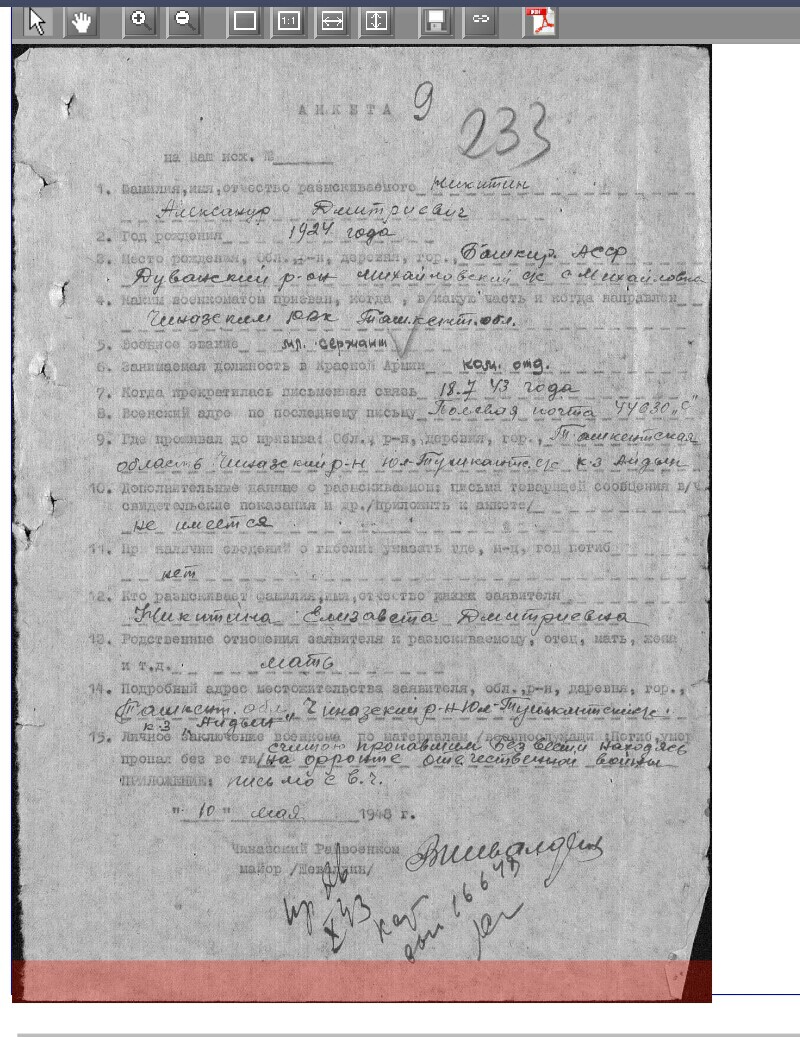 1:1
АНКЕТА 9
233
на Ваш исх. №
1. Фамилия,имя,отчество разыскиваемого Никитин
Александр Дмитриевич
2. Год рождения 1924 года
3. Место рождения, Обл., р-н, деревня, гор., Башкир. АССР
Дуванский р-он Михайловский с/с с Михайловка
4. Каким военкоматом призван, когда , в какую часть и когда направлен
Чиназским РВК Ташкент. обл.
5. Военное звание мл. сержант
6. Занимаемая должность в Красной Армии ком. отд.
7. Когда прекратилась письменная связь 18.7 43 года
8. Военский адрс по последнему письму Полевая почта 44630 „С"
9. Где проживал до призыва: Обл., р-н, деревня, гор., Ташкентская
область Чиназский р-н Юл-Тушкантс. с/с к-з Айдын
10. Дополнительные данные о разыскиваемом: письма товарищей сообщения в/ч
свидетельские показания и др./приложить к анкете/
не имеется
11. При наличии сведений о гибели: указать где, м-ц, год погиб
нет
12. Кто разыскивает фамилия,имя,отчество заявителя
Никитина Елизавета Дмитриевна
13. Родственные отношения заявителя к разыскиваемому, отец, мать, жена
и т.д. мать
14. Подробный адрес местожительства заявителя, обл.,р-н, деревня, гор.,
Ташкент. обл. Чиназский р-н Юл-Тушкантский с/с
к-з „Айдын"
15. Личное заключение военкома по материалам /военнослужащий:Погиб,умер
считаю пропавшим без вести находясь
пропал без ве ти/ на фронте отечественной войны
ПРИЛОЖЕНИЕ: письмо с в.ч.
"10" мая 1948 г.
Чиназский Райвоенком
майор /Шевалдин/
X 43
16645